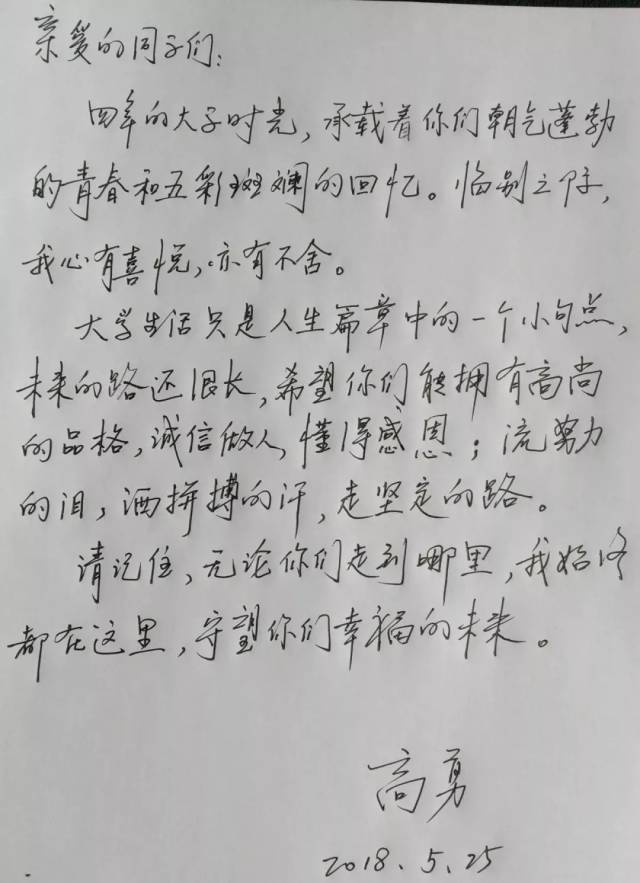 亲爱的同学们：
四年的大学时光，承载着你们朝气蓬勃
的青春和五彩斑斓的回忆。临别之际，
我心有喜悦，亦有不舍。
大学生活只是人生篇章中的一个小句点，
未来的路还很长，希望你们能拥有高尚
的品格，诚信做人，懂得感恩；流努力
的泪，洒拼搏的汗，走坚定的路。
请记住，无论你们走到哪里，我始终
都在这里，守望你们幸福的未来。
高勇
2018.5.25